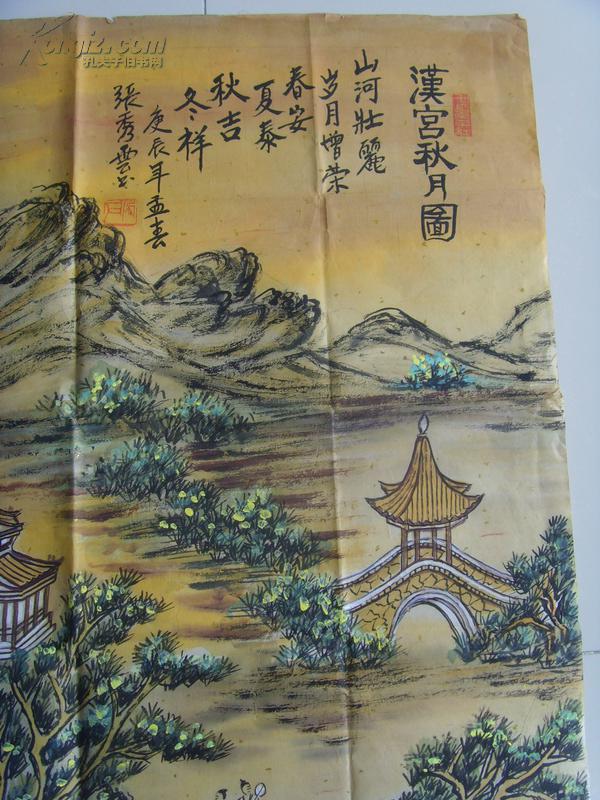 漢宮秋月圖
山河壯麗
岁月增荣
春安
夏泰
秋吉
冬祥
庚辰年孟春
張秀雲书
Kongfz.com
孔夫子旧书网